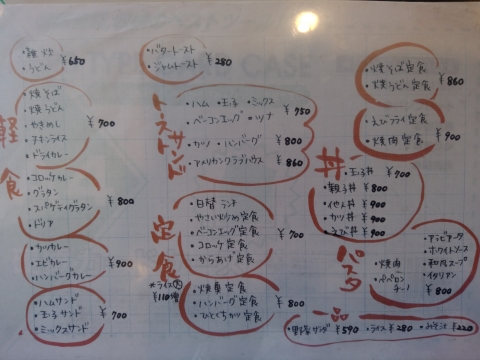 軽食
・雑炊
・うどん
¥650
・焼そば
・焼うどん
・やきめし
・チキンライス
・ドライカレー
¥700
・コロッケカレー
・グラタン
・スパゲティグラタン
・ドリア
¥800
・カツカレー
・エビカレー
・ハンバーグカレー
¥900
・ハムサンド
・玉子サンド
・ミックスサンド
¥700
・バタートースト
・ジャムトースト
¥280
トーストサンド
・ハム ・玉子 ・ミックス
・ベーコンエッグ ・ツナ
¥750
・カツ ・ハンバーグ ¥800
・アメリカンクラブハウス ¥860
定食
・日替ランチ
・やさい炒め定食
・ベーコンエッグ定食
・コロッケ定食
・からあげ定食
¥700
*ライス大
¥110増
・焼魚定食
・ハンバーグ定食
・ひとくちカツ定食
¥800
・焼そば定食
・焼うどん定食
¥860
・エビフライ定食
・焼肉定食
¥900
丼
・玉子丼 ¥700
・親子丼 ¥800
・他人丼 ¥800
・カツ丼 ¥800
・えび丼 ¥900
パスタ
・焼肉
・ペペロンチーノ
・アラビアータ
・ホワイトソース
・和風スープ
・イタリアン
¥800
一品
・野菜サラダ ¥590 ・ライス ¥280 ・みそ汁 ¥220